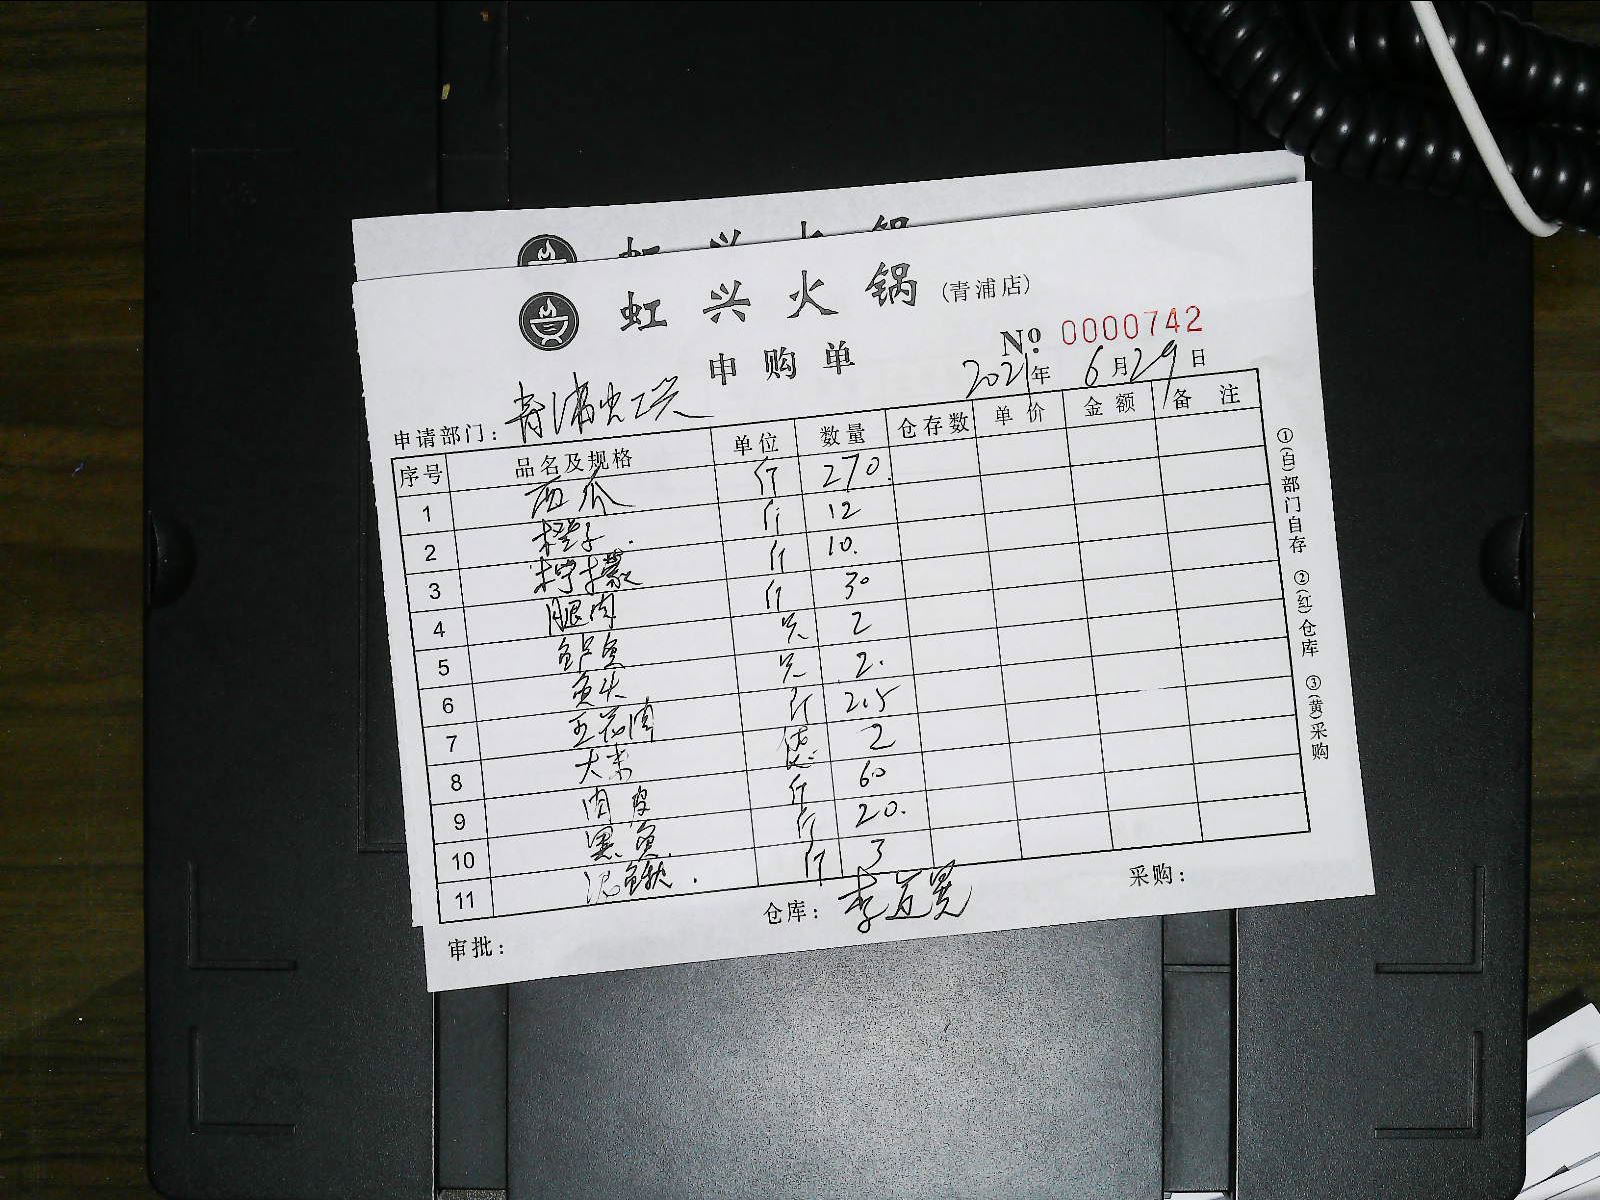 虹兴火锅
虹兴火锅(青浦店)
申购单
№ 0000742
2021年6月29日
申请部门：青浦虹兴
序号 品名及规格 单位 数量 仓存数 单价 金额 备注
1 西瓜 斤 270.
2 橙子. 斤 12
3 柠檬 斤 10.
4 腿肉 斤 30
5 鲈鱼 只 2
6 鱼头 只 2.
7 五花肉 斤 2.5
8 大米 袋 2
9 肉皮 斤 60
10 黑鱼 斤 20.
11 泥鳅. 斤 3
①(白)部门自存 ②(红)仓库 ③(黄)采购
审批： 仓库：李 采购：